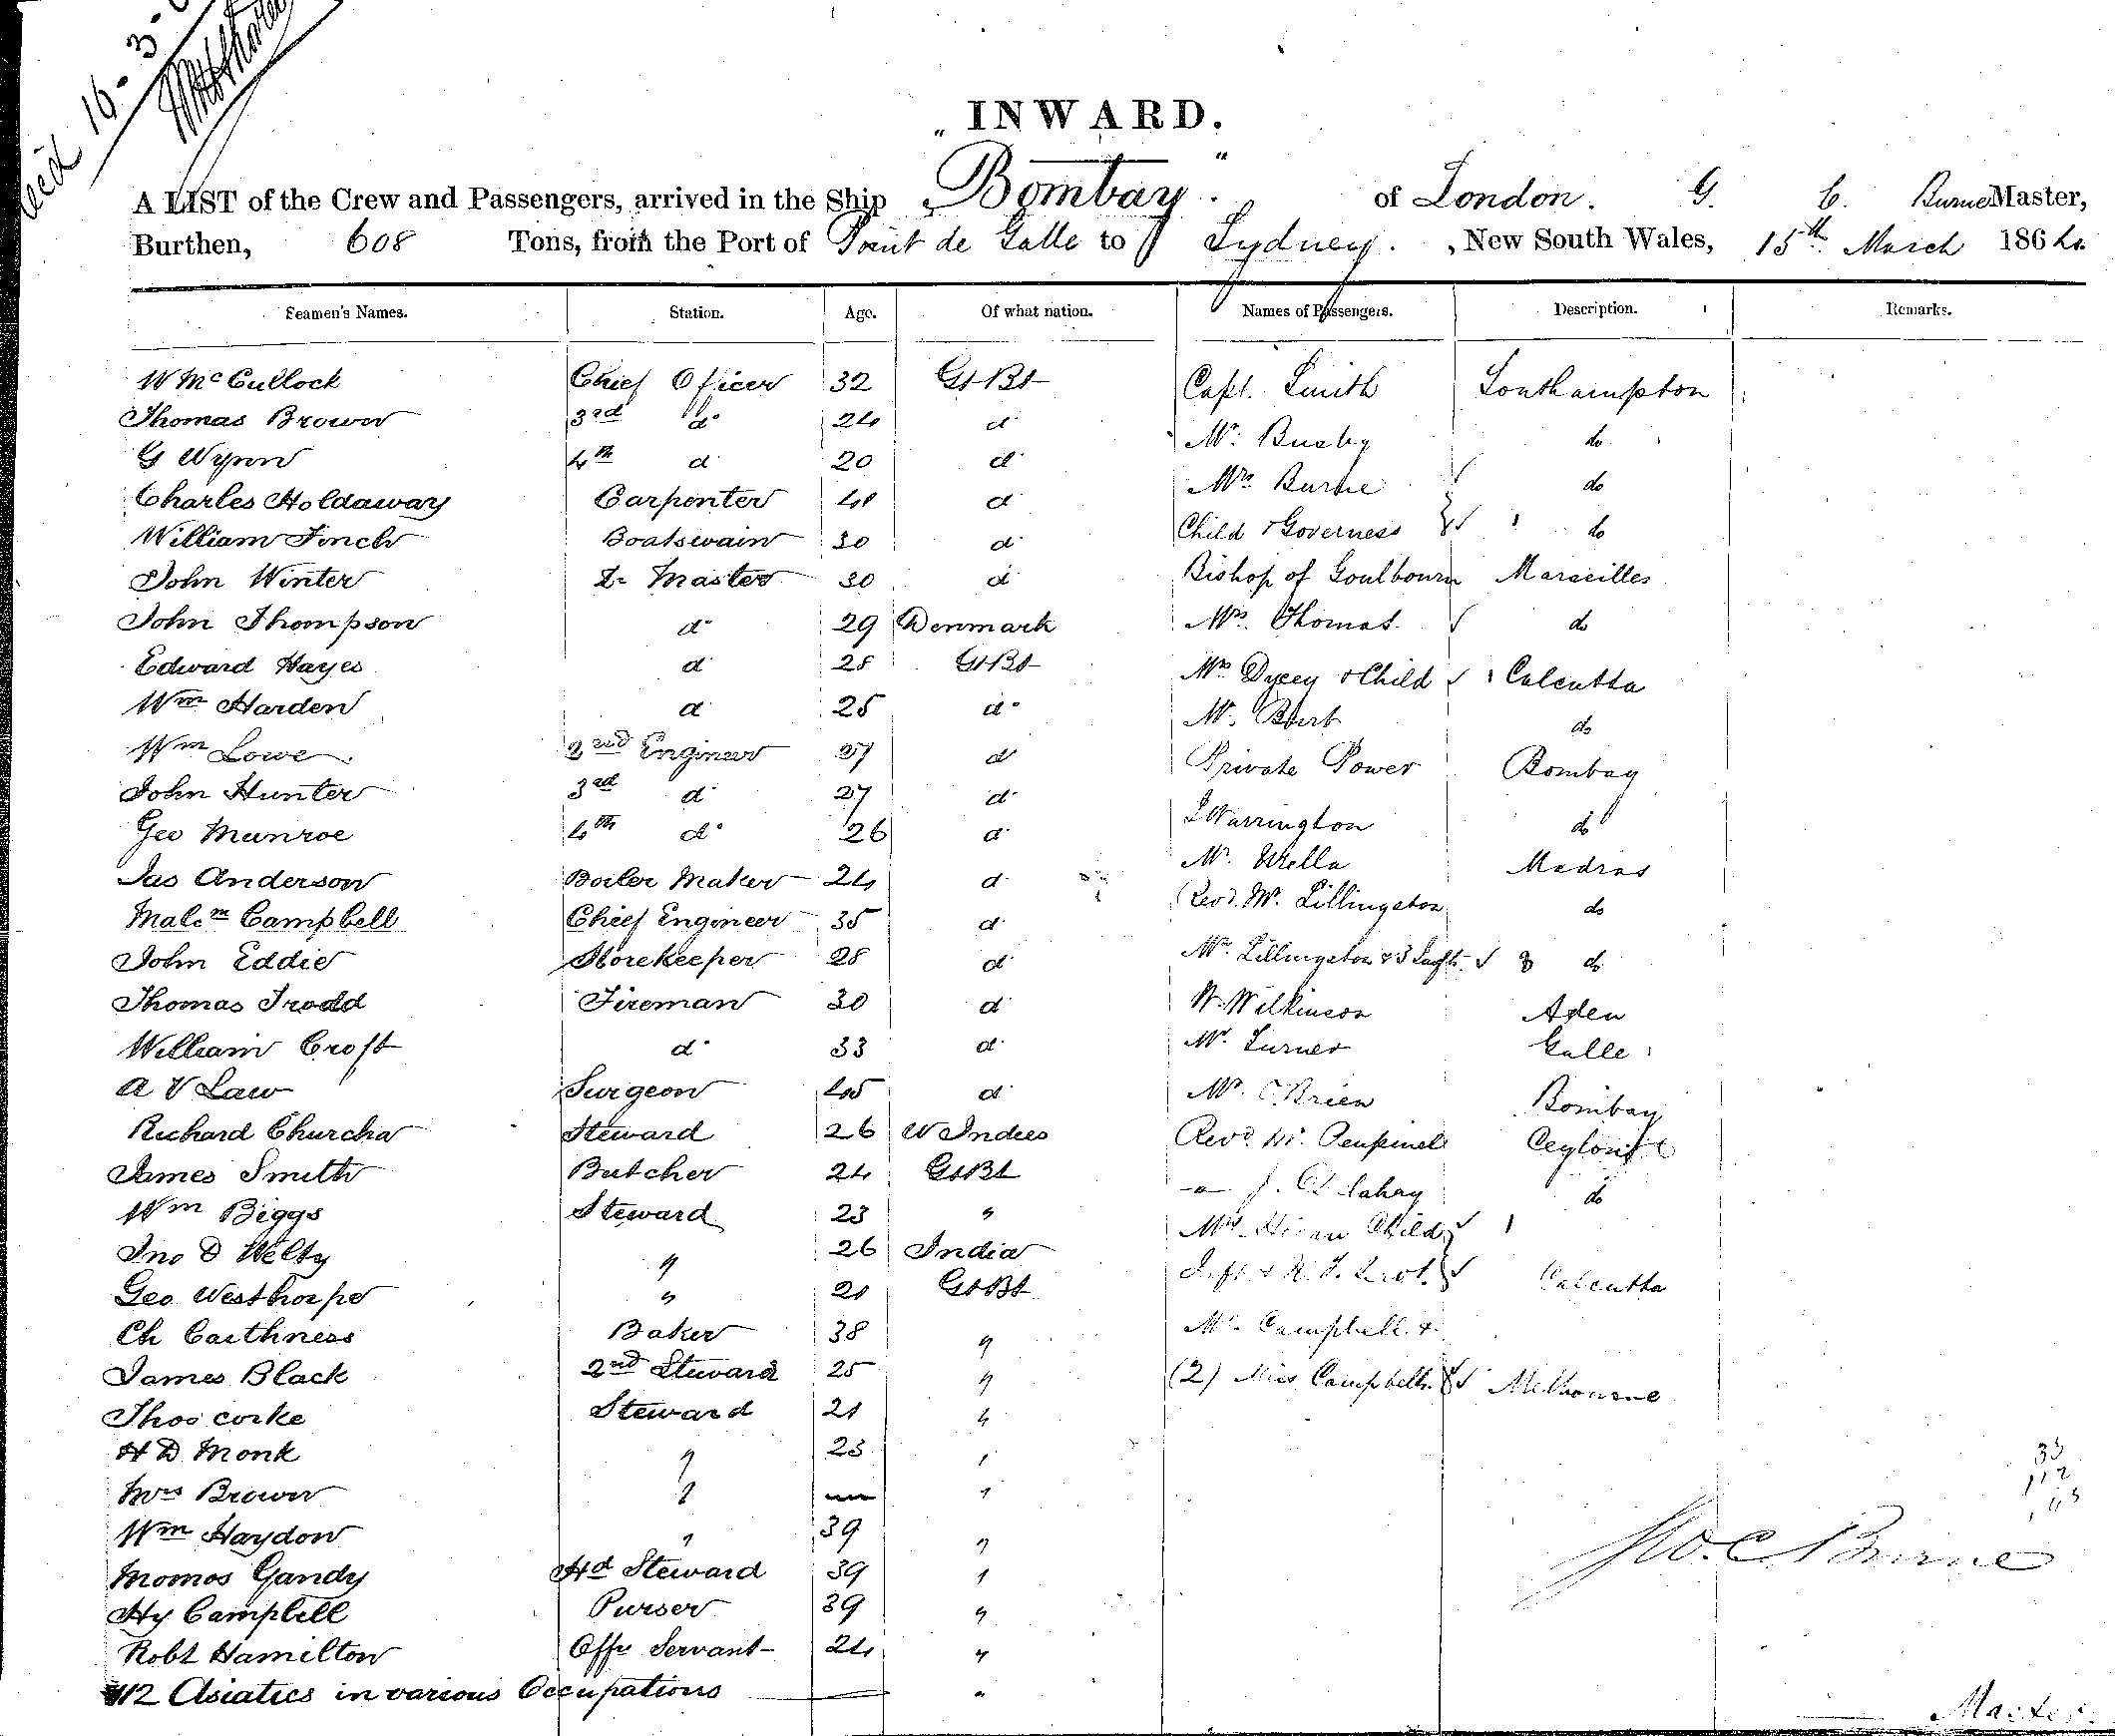 16-3-
INWARD.
A LIST of the Crew and Passengers, arrived in the Ship "Bombay" of London. G. C. Burne Master,
Burthen, 608 Tons, from the Port of Point de Galle to Sydney. , New South Wales, 15th March 1864
Seamen's Names. Station. Age. Of what nation. Names of Passengers. Description. Remarks.
W McCullock Chief Officer 32 Gt Bt Capt. Smith Southampton
Thomas Brown 3rd do 24 d Mr. Busby do
G Wynn 4th d 20 d Mrs Burne do
Charles Holdaway Carpenter d Child & Governess do
William Finch Boatswain 30 d Bishop of Goulbourn Marseilles
John Winter Qr Master 30 d Mrs. Thomas do
John Thompson d 29 Denmark Mrs Dycey & Child Calcutta
Edward Hayes d 28 Gt Bt Mr. do
Wm Harden d 25 d Private Power Bombay
Wm Lowe 2nd Engineer 27 d Warrington do
John Hunter 3rd d 27 d Mr. Madras
Geo Munroe 4th d 26 d Revd. Mr. Lillingston do
Jas Anderson Boiler Maker 24 d Mrs. Lillingston & 3 do
Malcm Campbell Chief Engineer 35 d Wilkinson Aden
John Eddie Storekeeper 28 d Mr. Turner Galle
Thomas Trodd Fireman 30 d Mr. O'Brien Bombay
William Croft d 33 d Revd. Mr. Ceylon
A V Law Surgeon 45 d J. do
Richard Churcha Steward 26 W Indies Mrs Child
James Smith Butcher 24 Gt Bt Calcutta
Wm Biggs Steward 23 " Mr. Campbell &
Jno D Welty " 26 India (2) Miss Campbells Melbourne
Geo Westhorpe " 21 Gt Bt
Ch Caithness Baker 38 "
James Black 2nd Steward 25 "
Thos Corke Steward 21 "
H D Monk " 23 "
Mrs Brown " — "
Wm Haydon " 39 "
Momos Gandy Hd Steward 39 "
Hy Campbell Purser 39 "
Robt Hamilton Offrs Servant 24 "
112 Asiatics in various Occupations — "
33
112
C Burne
Master.